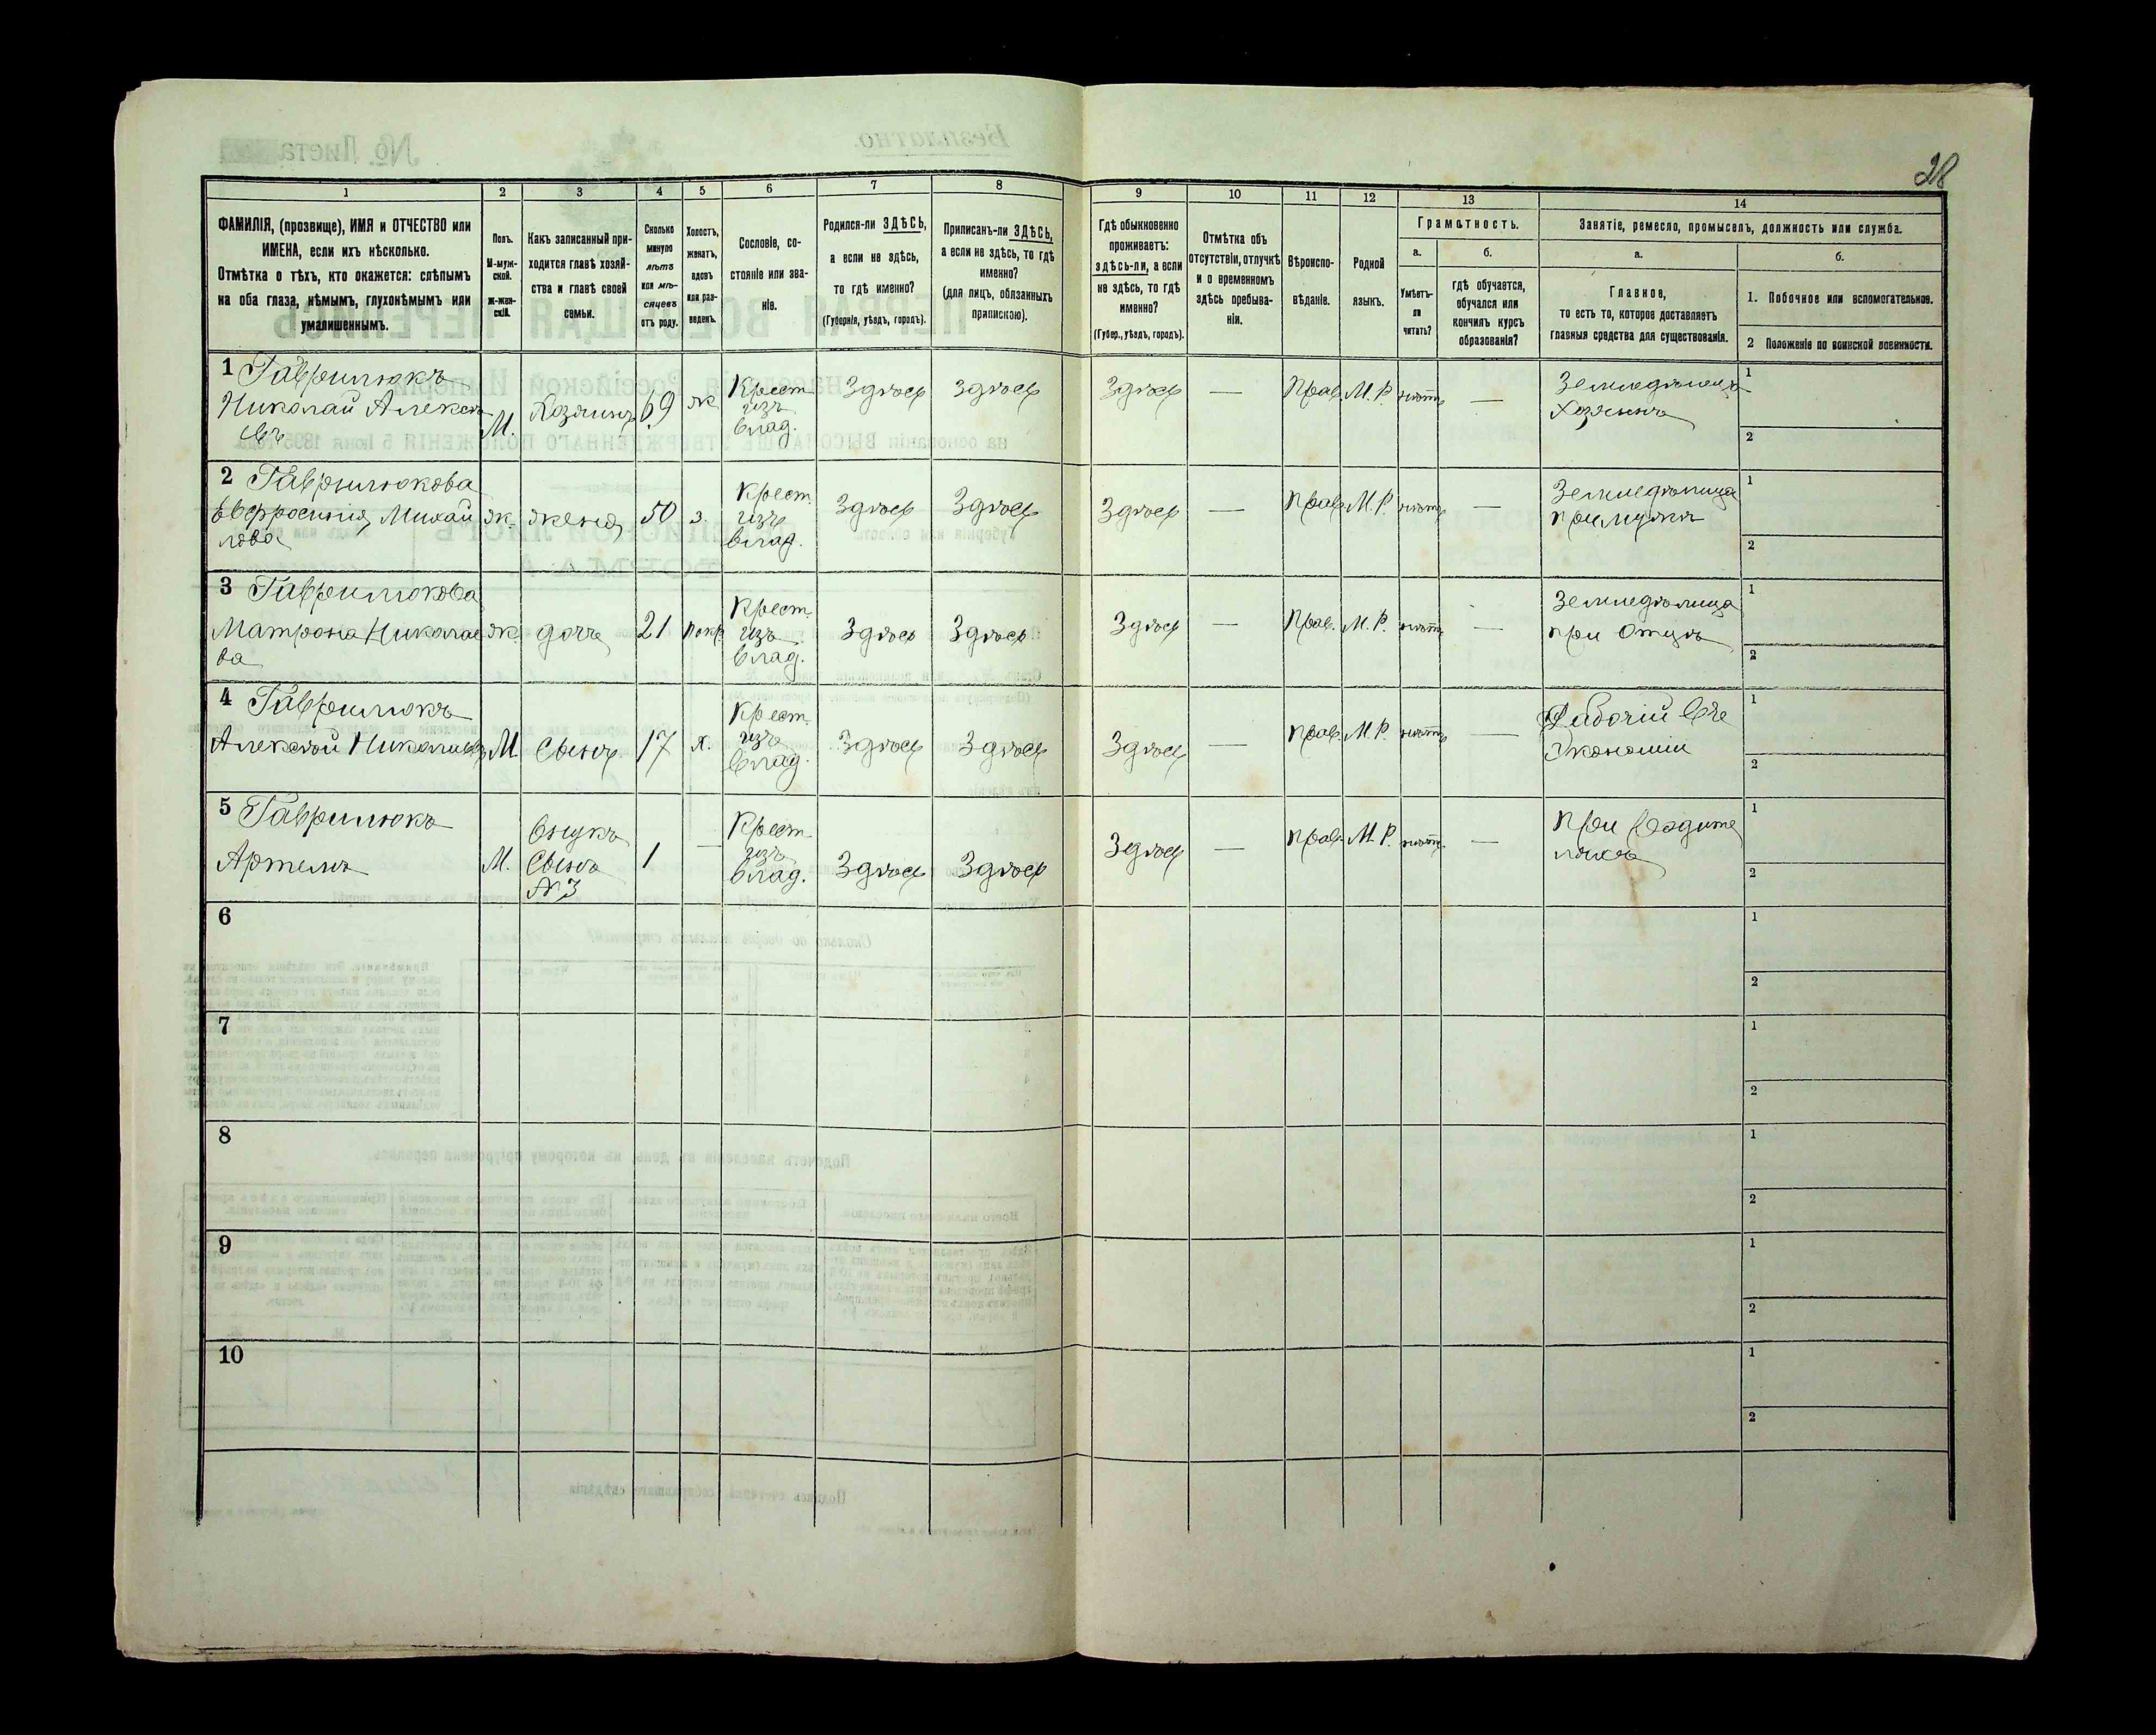 28
1 2 3 4 5 6 7 8 9 10 11 12 13 14
ФАМИЛІЯ, (прозвище), ИМЯ и ОТЧЕСТВО или
ИМЕНА, если ихъ нѣсколько.
Отмѣтка о тѣхъ, кто окажется: слѣпымъ
на оба глаза, нѣмымъ, глухонѣмымъ или
умалишеннымъ.
Полъ.
М-муж-
ской.
ж-жен-
скій.
Какъ записанный при-
ходится главѣ хозяй-
ства и главѣ своей
семьи.
Сколько
минуло
лѣтъ
или мѣ-
сяцевъ
отъ роду.
Холостъ,
женатъ,
вдовъ
или раз-
веденъ.
Сословіе, со-
стояніе или зва-
ніе.
Родился-ли ЗДѢСЬ,
а если не здѣсь,
то гдѣ именно?
(Губернія, уѣздъ, городъ).
Приписанъ-ли ЗДѢСЬ,
а если не здѣсь, то гдѣ
именно?
(для лицъ, обязанныхъ
припискою).
Гдѣ обыкновенно
проживаетъ:
здѣсь-ли, а если
не здѣсь, то гдѣ
именно?
(Губер., уѣздъ, городъ).
Отмѣтка объ
отсутствіи, отлучкѣ
и о временномъ
здѣсь пребыва-
ніи.
Вѣроиспо-
вѣданіе.
Родной
языкъ.
Грамотность.
а.
Умѣетъ-
ли
читать?
б.
гдѣ обучается,
обучался или
кончилъ курсъ
образованія?
Занятіе, ремесло, промыселъ, должность или служба.
а.
Главное,
то есть то, которое доставляетъ
главныя средства для существованія.
б.
1. Побочное или вспомогательное.
2 Положеніе по воинской повинности.
1 Гаврилюкъ
Николай Алексѣ
евъ
М.
Хозяинъ
69
ж
Крест
изъ
влад.
Здѣсь
Здѣсь
Здѣсь
—
Прав.
М. Р.
нѣтъ
—
Земледѣлецъ
Хозяинъ
1
2
2 Гаврилюкова
Евфросинія Михай
лова
ж.
жена
50
з.
Крест.
изъ
влад.
Здѣсь
Здѣсь
Здѣсь
—
Прав.
М. Р.
нѣтъ
—
Земледѣлица
при мужѣ
1
2
3 Гаврилюкова
Матрона Николае
ва
ж.
дочь
21
Крест.
изъ
влад.
Здѣсь
Здѣсь
Здѣсь
—
Прав.
М. Р.
нѣтъ
—
Земледѣлица
при Отцѣ
1
2
4 Гаврилюкъ
Алексѣй Николаевъ
М.
Сынъ
17
х.
Крест.
изъ
влад.
Здѣсь
Здѣсь
Здѣсь
—
Прав.
М. Р.
нѣтъ
—
Рабочій въ
Экономіи
1
2
5 Гаврилюкъ
Артемъ
М.
Внукъ
Сынъ
№ 3
1
—
Крест.
изъ
влад.
Здѣсь
Здѣсь
Здѣсь
—
Прав.
М. Р.
нѣтъ
—
При родите
ляхъ
1
2
6
1
2
7
1
2
8
1
2
9
1
2
10
1
2